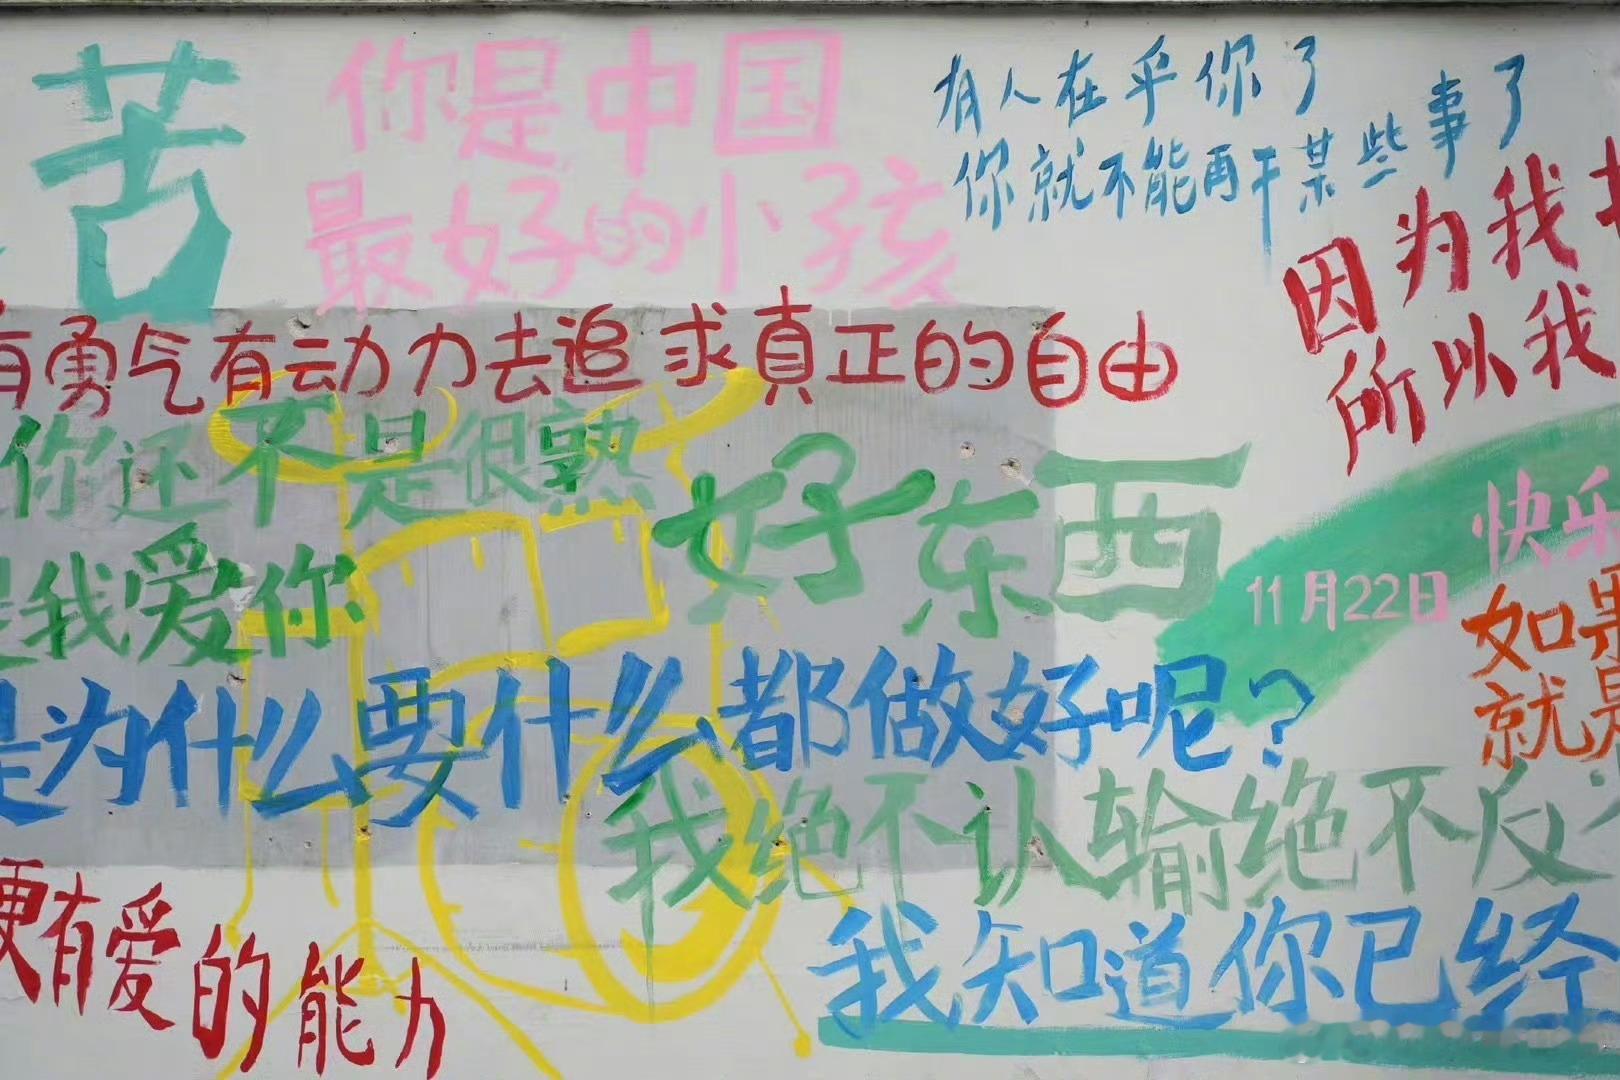 苦
你是中国
最好的小孩
有人在乎你了
你就不能再干某些事了
因为我
所以我
有勇气有动力去追求真正的自由
你还不是很熟
是我爱你
好东西
快乐
11月22日
如果
就是
是为什么要什么都做好呢?
我绝不认输绝不反
更有爱的能力
我知道你已经